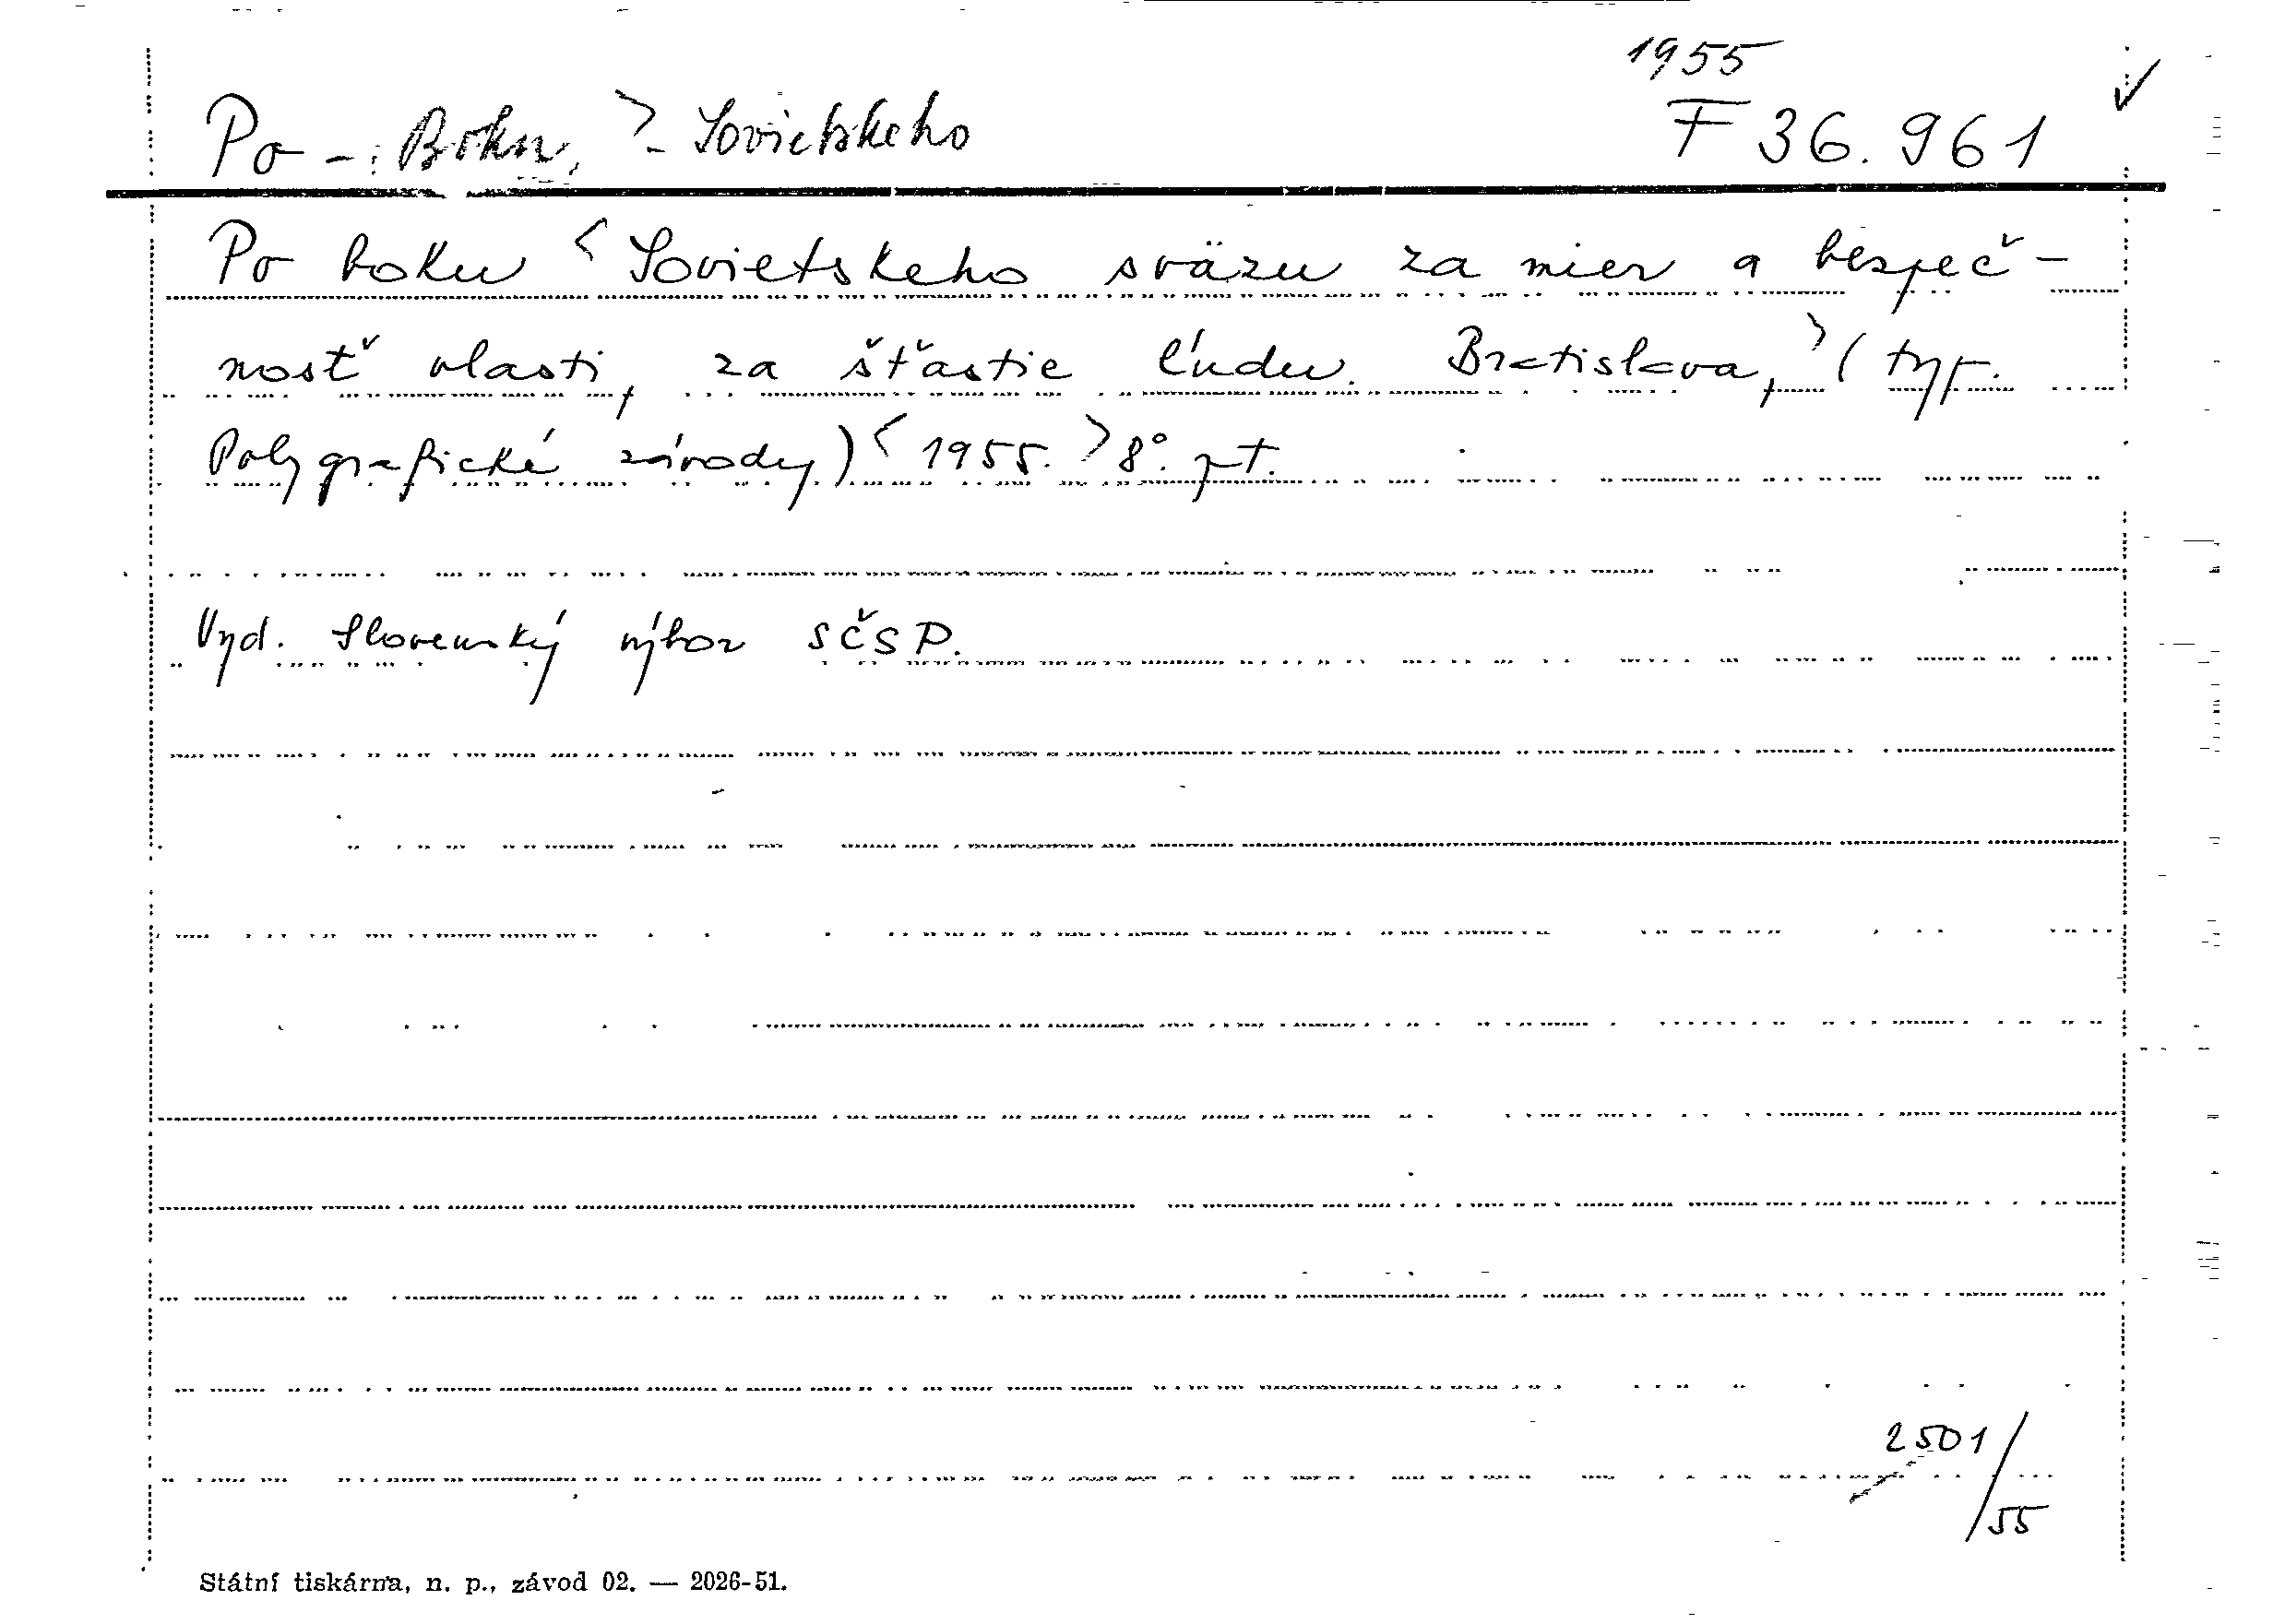 1955
Po - : Boku, > - Sovietskeho F 36.961 ✓
Po boku < Sovietskeho sväzu za mier a bezpeč-
nosť vlasti, za šťastie ľudu. Bratislava, > ( typ.
Polygrafické závody) < 1955. > 8°. pt.
Vyd. Slovenský výbor SČSP.
2501/
55
Státní tiskárna, n. p., závod 02. — 2026-51.